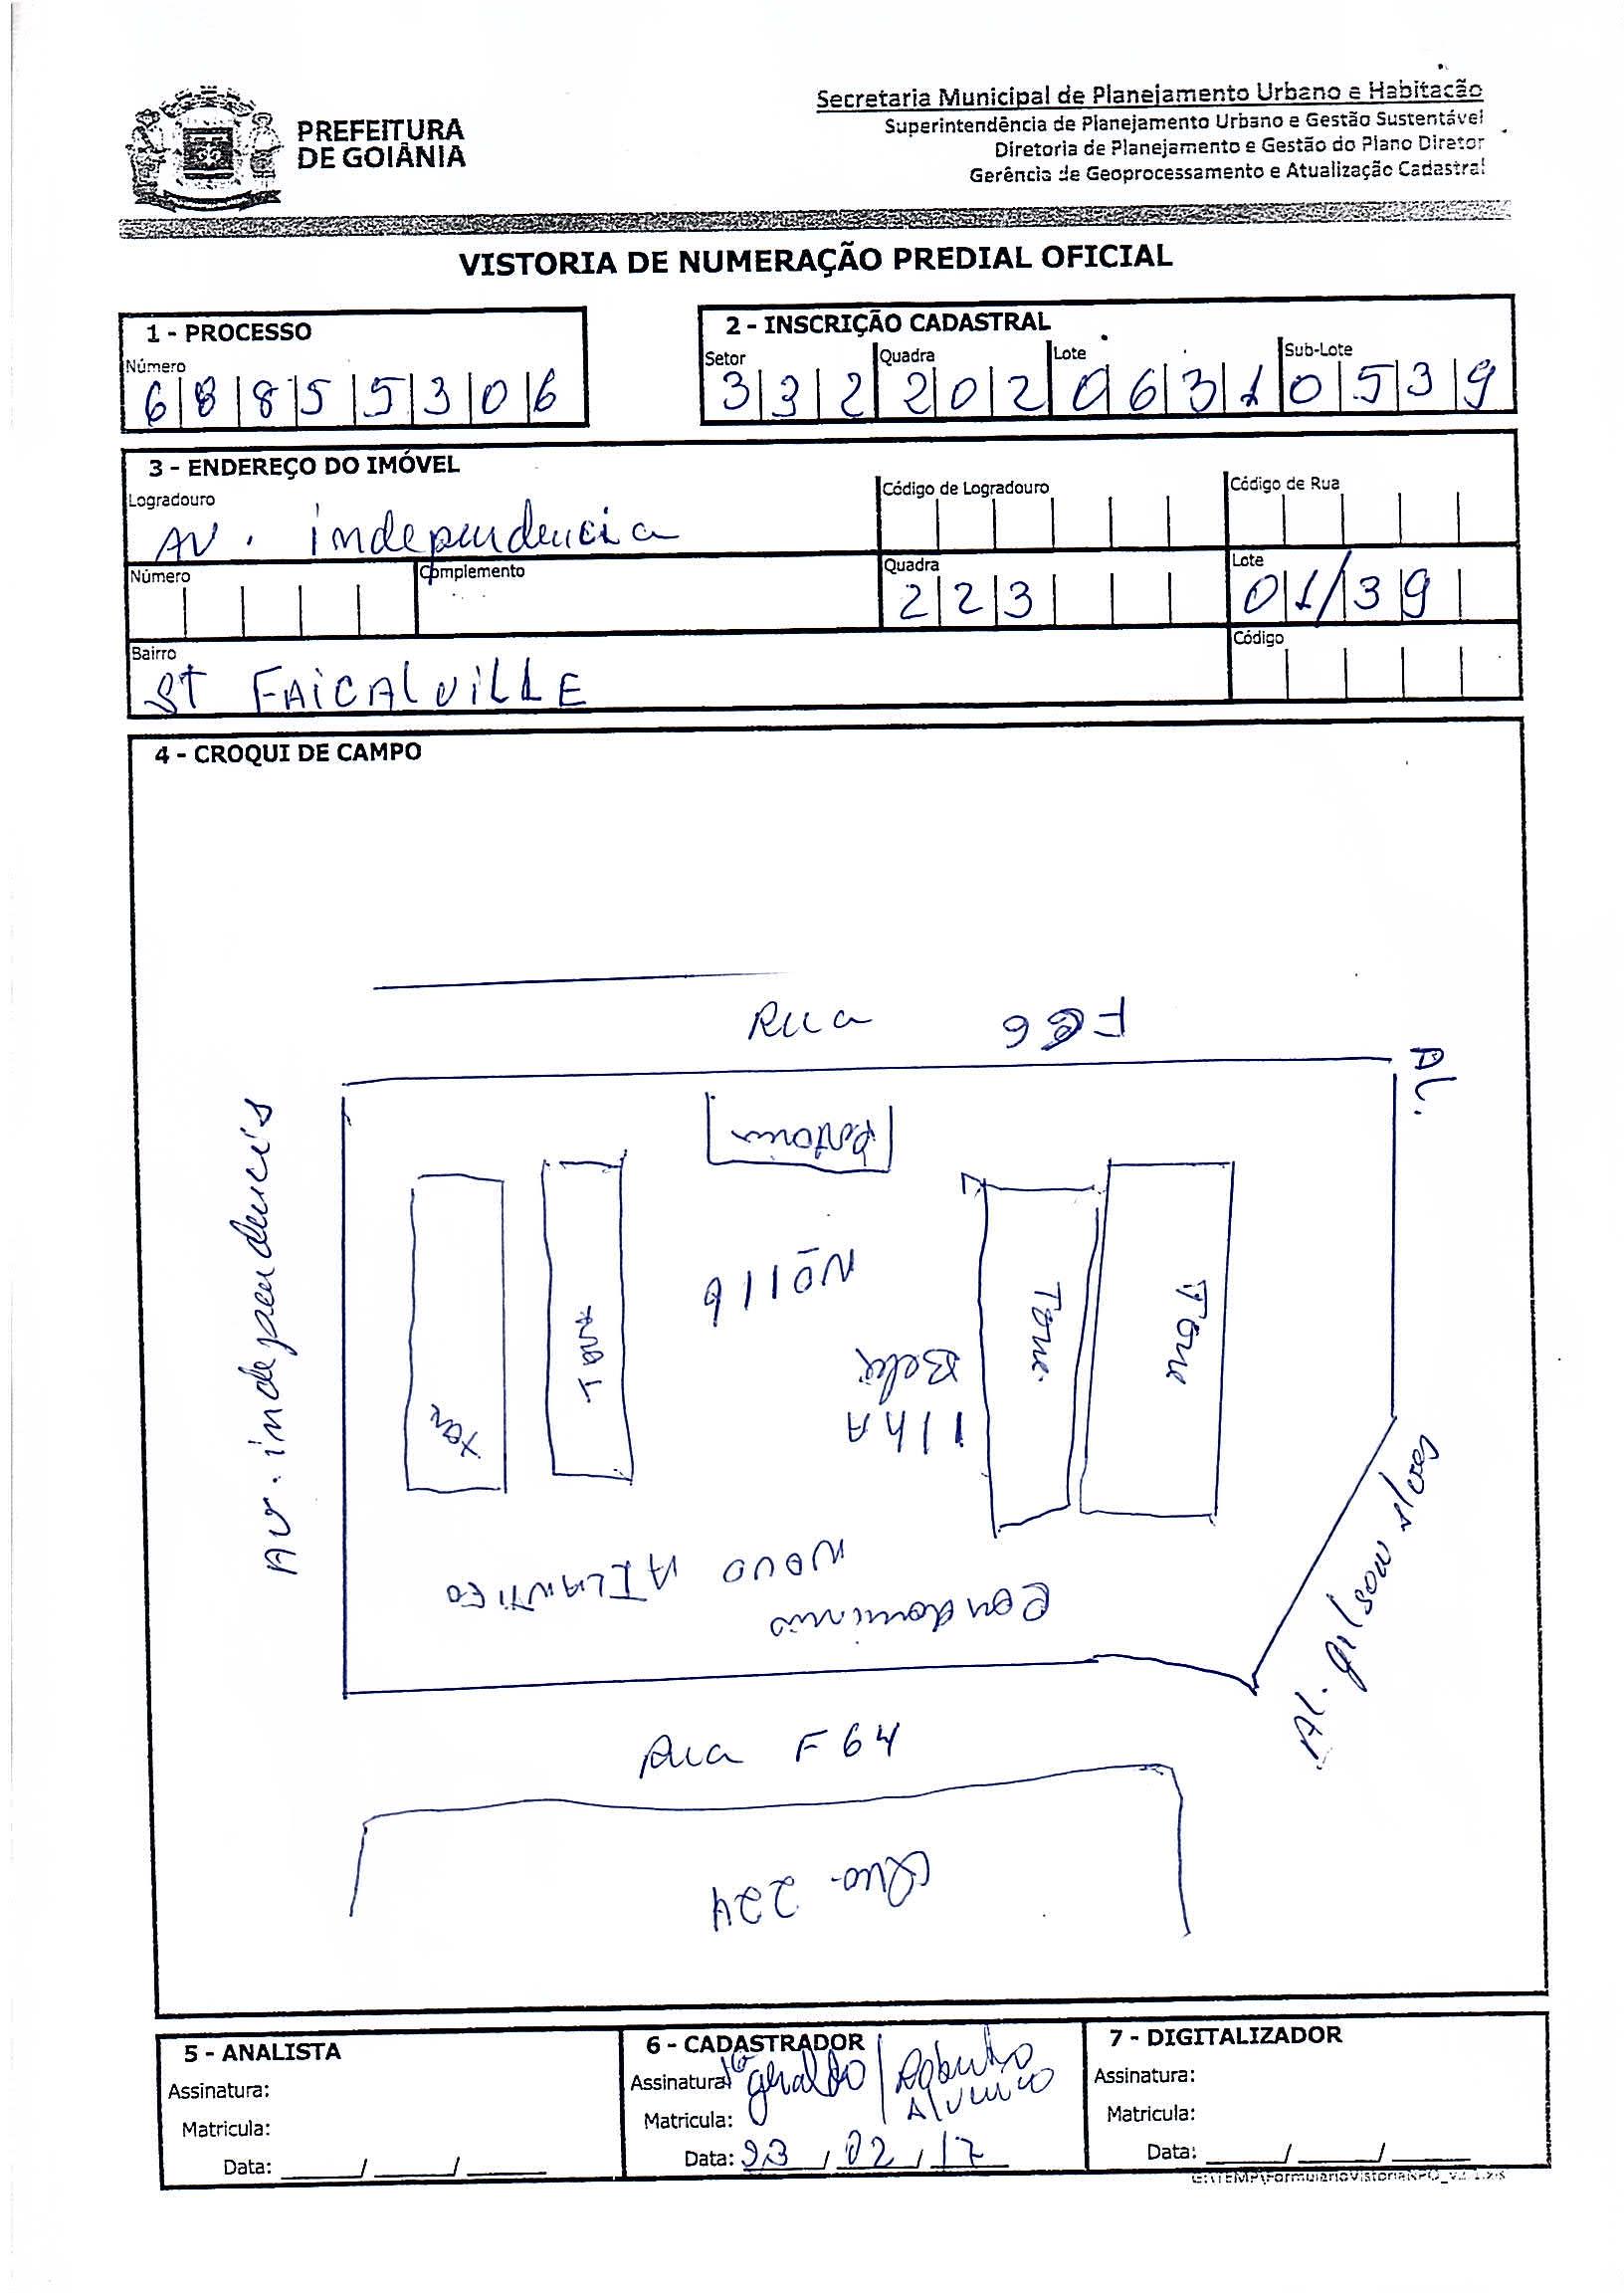 PREFEITURA
DE GOIÂNIA
Secretaria Municipal de Planejamento Urbano e Habitação
Superintendência de Planejamento Urbano e Gestão Sustentável
Diretoria de Planejamento e Gestão do Plano Diretor
Gerência de Geoprocessamento e Atualização Cadastral
VISTORIA DE NUMERAÇÃO PREDIAL OFICIAL
1 - PROCESSO
Número
68855306
2 - INSCRIÇÃO CADASTRAL
Setor Quadra Lote Sub-Lote
332 202 0631 0539
3 - ENDEREÇO DO IMÓVEL
Logradouro Código de Logradouro Código de Rua
AV. independencia
Número Complemento Quadra Lote
223 01/39
Bairro Código
ST FAICALVILLE
4 - CROQUI DE CAMPO
Rua F66
Al.
Portaria
Av. independencis
Nº 116
Torre
Torre
Ilha
Bela
Condominio
NOVO ATLANTICO
Al. gilson alves
Rua F64
Qua- 224
5 - ANALISTA
Assinatura:
Matricula:
Data: ___/___/___
6 - CADASTRADOR
Assinatura: geraldo / Roberto
Matricula:
Data: 23/02/17
7 - DIGITALIZADOR
Assinatura:
Matricula:
Data: ___/___/___
G:\TEMP\FormularioVistoriaNPO_v2_1.xls